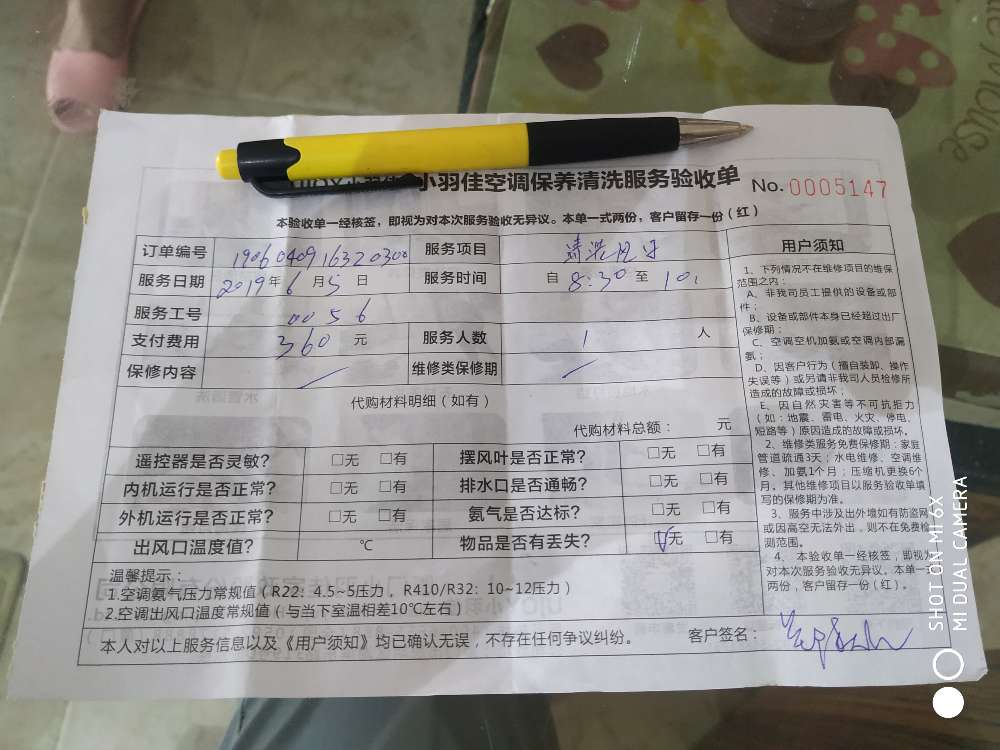 小羽佳空调保养清洗服务验收单 No.0005147
本验收单一经核签，即视为对本次服务验收无异议。本单一式两份，客户留存一份（红）
订单编号 1906040916320300 服务项目 清洗
服务日期 2019年6月5日 服务时间 自8:30至10:
服务工号 0056
支付费用 360元 服务人数 1人
保修内容 维修类保修期
代购材料明细（如有）
代购材料总额： 元
遥控器是否灵敏？ □无 □有 摆风叶是否正常？ □无 □有
内机运行是否正常？ □无 □有 排水口是否通畅？ □无 □有
外机运行是否正常？ □无 □有 氨气是否达标？ □无 □有
出风口温度值？ ℃ 物品是否有丢失？ □无 □有
温馨提示：
1.空调氨气压力常规值（R22：4.5~5压力，R410/R32：10~12压力）
2.空调出风口温度常规值（与当下室温相差10℃左右）
本人对以上服务信息以及《用户须知》均已确认无误，不存在任何争议纠纷。 客户签名：
用户须知
1、下列情况不在维修项目的维保
范围之内：
A、非我司员工提供的设备或部
件；
B、设备或部件本身已经超过出厂
保修期；
C、空调空机加氨或空调内部漏
氨；
D、因客户行为（擅自装卸、操作
失误等）或另请非我司人员检修所
造成的故障或损坏；
E、因自然灾害等不可抗拒力
（如：地震、雷电、火灾、停电、
短路等）原因造成的故障或损坏。
2、维修类服务免费保修期：家庭
管道疏通3天；水电维修、空调维
修、加氨1个月；压缩机更换6个
月。其他维修项目以服务验收单填
写的保修期为准。
3、服务中涉及出外墙如有防盗网
或因高空无法外出，则不在免费检
测范围。
4、本验收单一经核签，即视为
对本次服务验收无异议。本单一式
两份，客户留存一份（红）。
SHOT ON MI 6X
MI DUAL CAMERA